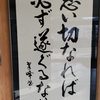 思い切なれば
必ず遂ぐるなり